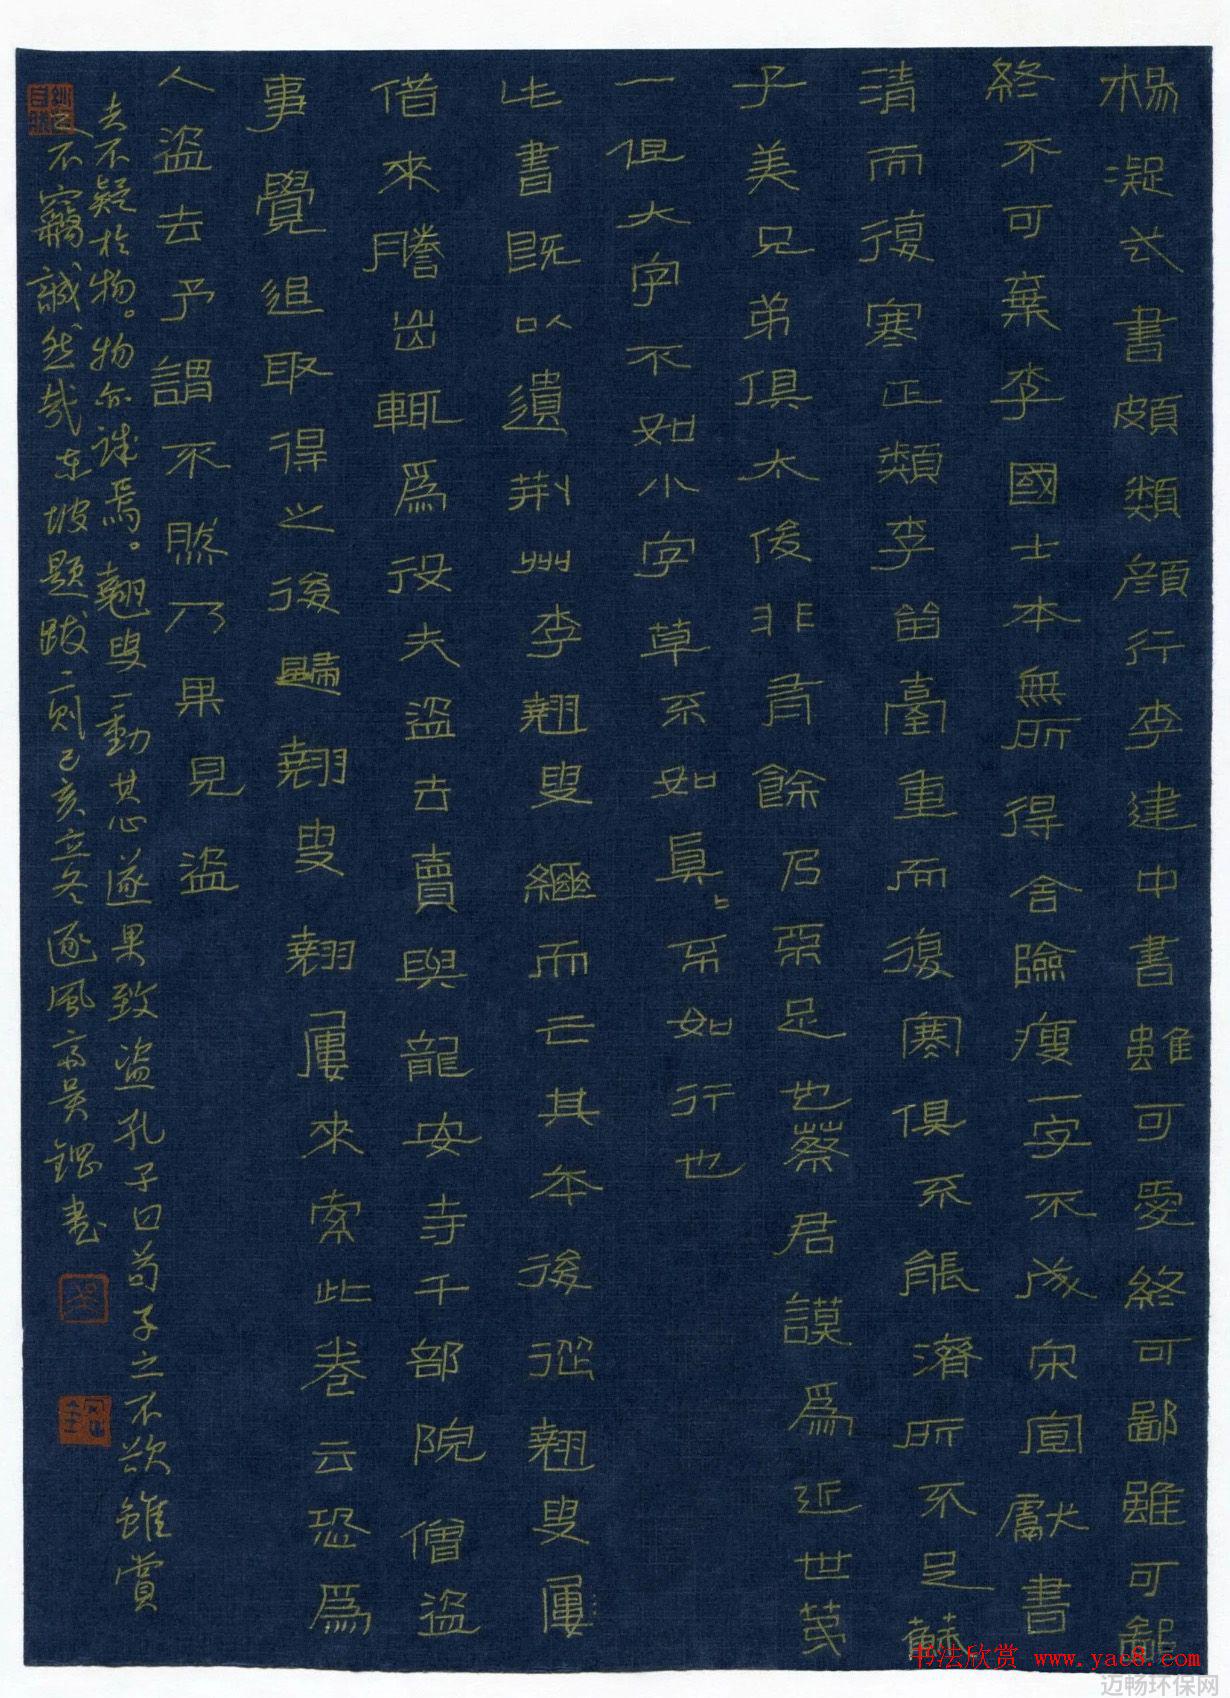 楊凝式書頗類顏行李建中書雖可愛終可鄙雖可鄙
終不可棄李國士本無所得舍險瘦一字不成宋宣獻書
清而復寒正類李留臺重而復寒俱不能濟所不足蘇
子美兄弟俱太俊非有餘乃不足也蔡君謨為近世第
一但大字不如小字草不如真、不如行也
此書既以遺荊州李翹叟繼而亡其本後從翹叟屢
借來謄出輒為役夫盜去賣與龍安寺千部院僧盜
事覺追取得之後歸翹叟翹叟屢來索此卷云恐為
人盜去予謂不然乃果見盜
去不疑於物。物亦誠焉。翹叟一動其心遂果致盜孔子曰苟子之不欲雖賞
之不竊誠然哉東坡題跋二則己亥立冬逐風亭吳鍶書
书法欣赏 www.yac8.com
迈畅环保网